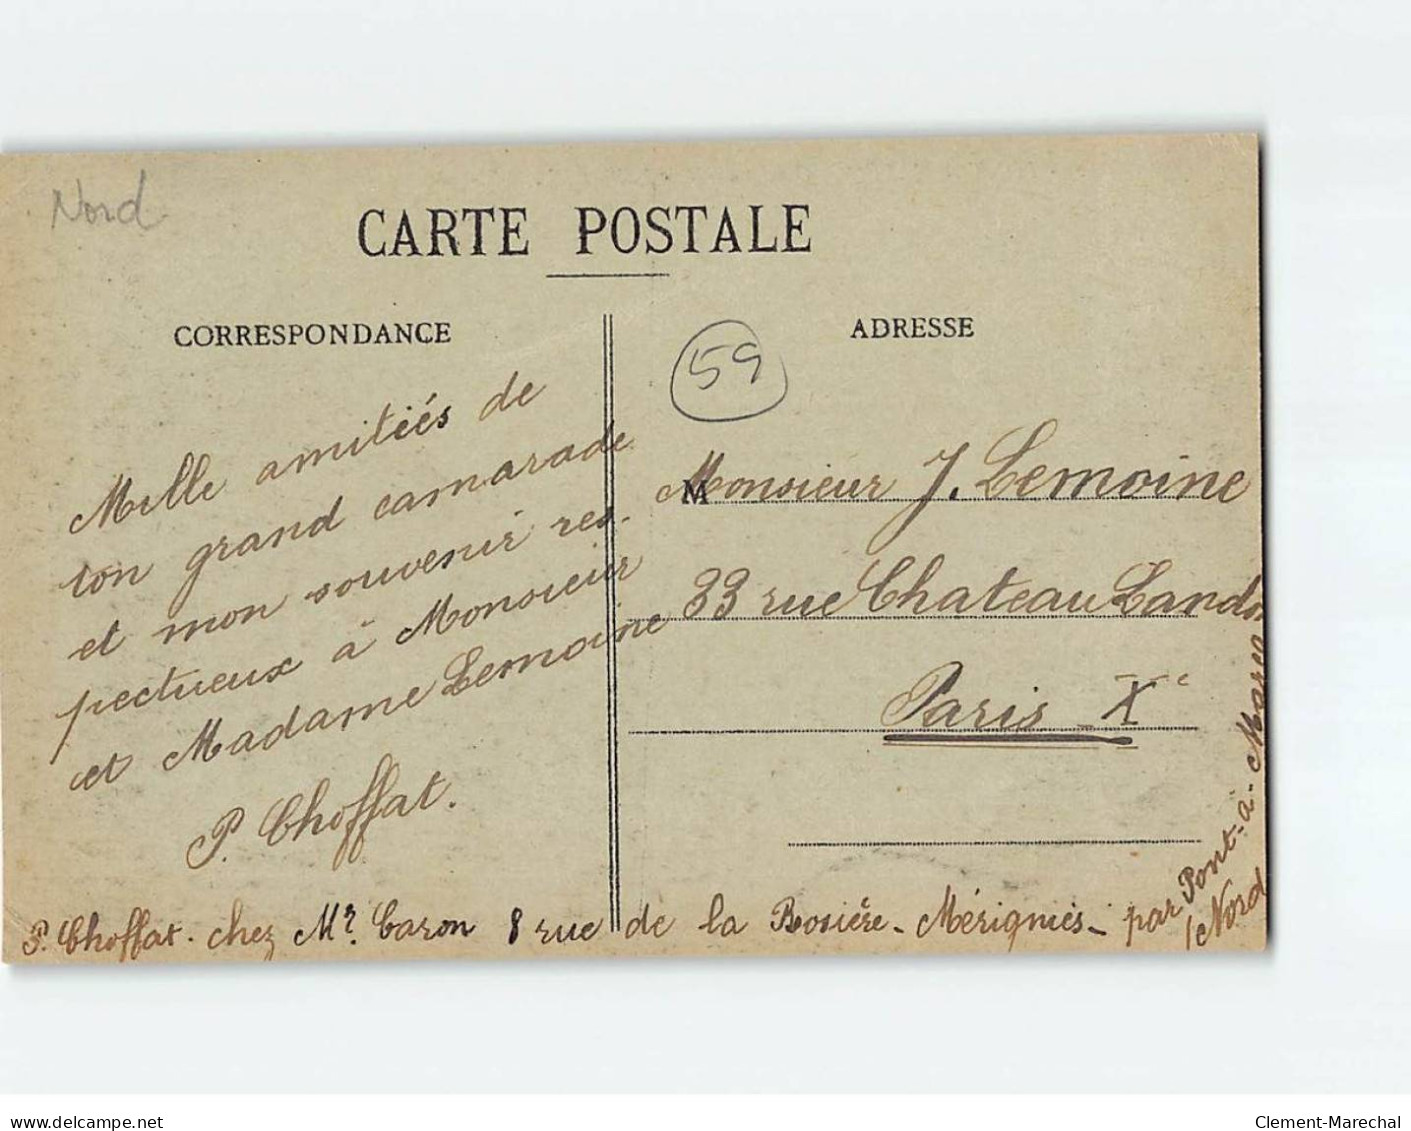 Nord
CARTE POSTALE
CORRESPONDANCE
ADRESSE
59
Mille amitiés de
ton grand camarade
et mon souvenir res-
pectueux à Monsieur
et Madame Lemoine
P. Choffat.
M
Monsieur J. Lemoine
33 rue Chateau Landon
Paris X e
P. Choffat. chez Mr. Caron 8 rue de la Rosière - Mérignies - par Pont-à-Marcq
/Nord
www.delcampe.net
Clement-Marechal